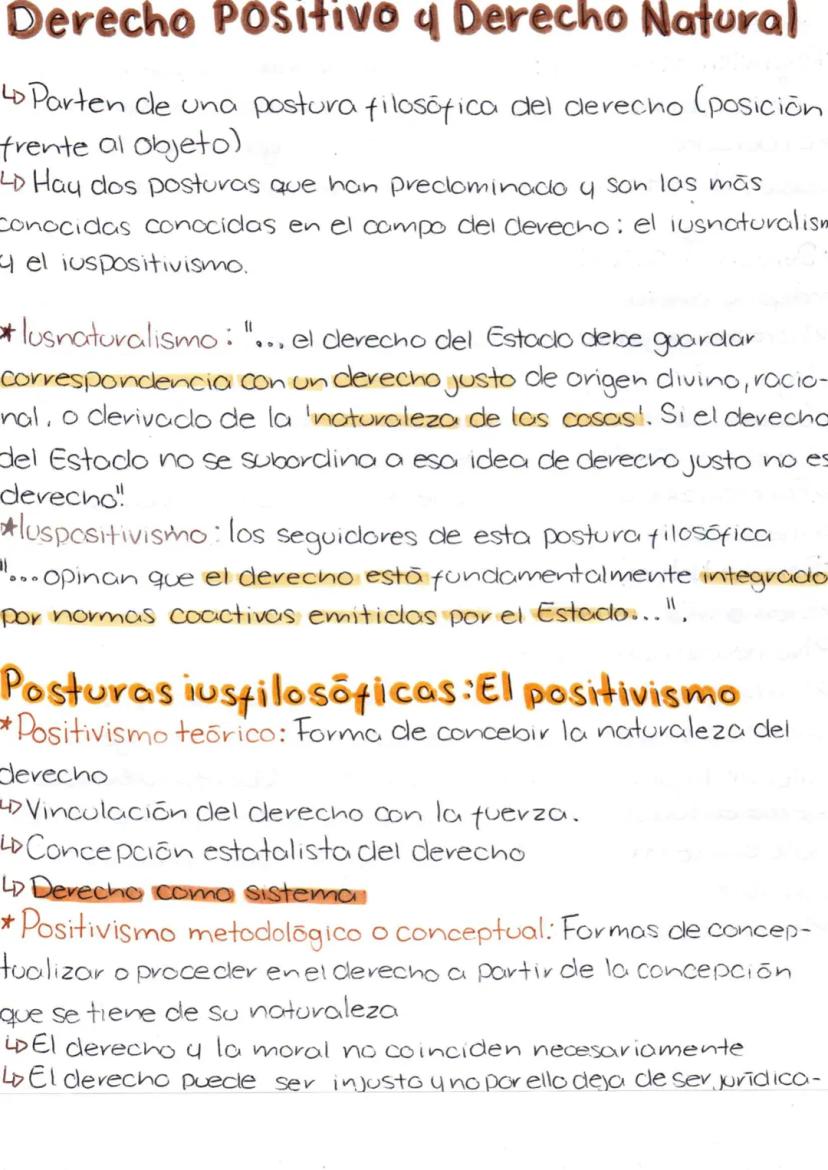 Derecho Positivo y Derecho Natural
↳ Parten de una postura filosófica del derecho (posición
frente al objeto)
↳ Hay dos posturas que han predominado y son las más
conocidas conocidas en el campo del derecho: el iusnaturalism
y el iuspositivismo.
* Iusnaturalismo: "... el derecho del Estado debe guardar
correspondencia con un derecho justo de origen divino, racio-
nal, o derivado de la 'naturaleza de las cosas'. Si el derecho
del Estado no se subordina a esa idea de derecho justo no es
derecho"
* Iuspositivismo: los seguidores de esta postura filosófica
"... opinan que el derecho está fundamentalmente integrado
por normas coactivas emitidas por el Estado...".
Posturas iusfilosóficas: El positivismo
* Positivismo teórico: Forma de concebir la naturaleza del
derecho
↳ Vinculación del derecho con la fuerza.
↳ Concepción estatalista del derecho
↳ Derecho como sistema
* Positivismo metodológico o conceptual: Formas de concep-
tualizar o proceder en el derecho a partir de la concepción
que se tiene de su naturaleza
↳ El derecho y la moral no coinciden necesariamente
↳ El derecho puede ser injusto y no por ello deja de ser jurídica-